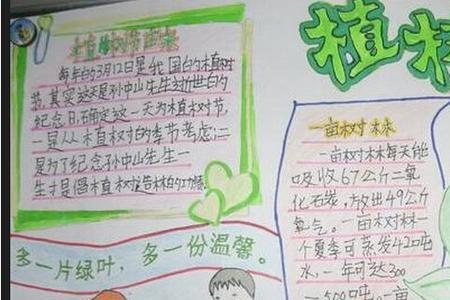 植树节由来
每年的3月12日是我国的植树
节,其实这天是孙中山先生逝世的
纪念日,确定这一天为植树节,
一是从植树的季节考虑;二
是为了纪念孙中山先生一
生
倡植树造林的功绩
多一片绿叶,多一份温馨。
植树
一亩树林
一亩树林每天能
吸收67公斤二氧
化石炭,放出49公斤
氧气。一亩树林一
个夏季可蒸发420吨
水,一年可达300
500吨
一亩